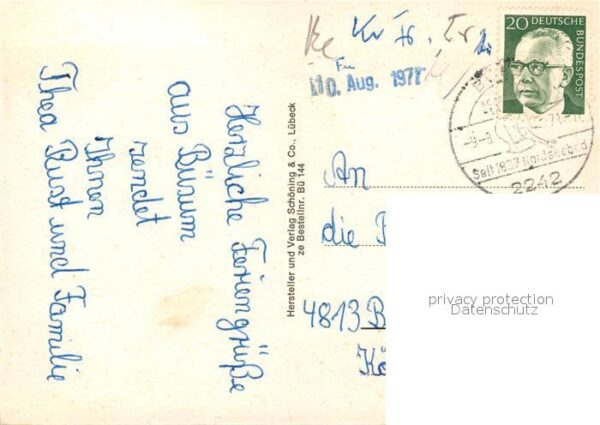 Herzliche Feriengrüße
aus Büsum
sendet
Ihnen
Thea Rust und Familie
Hersteller und Verlag Schöning & Co., Lübeck
ze Bestellnr. Bü 144
10. Aug. 1971
20 DEUTSCHE BUNDESPOST
-9-8
Seit 1837 Nordseebad
2242
An
die
4813 B
Kö
privacy protection
Datenschutz